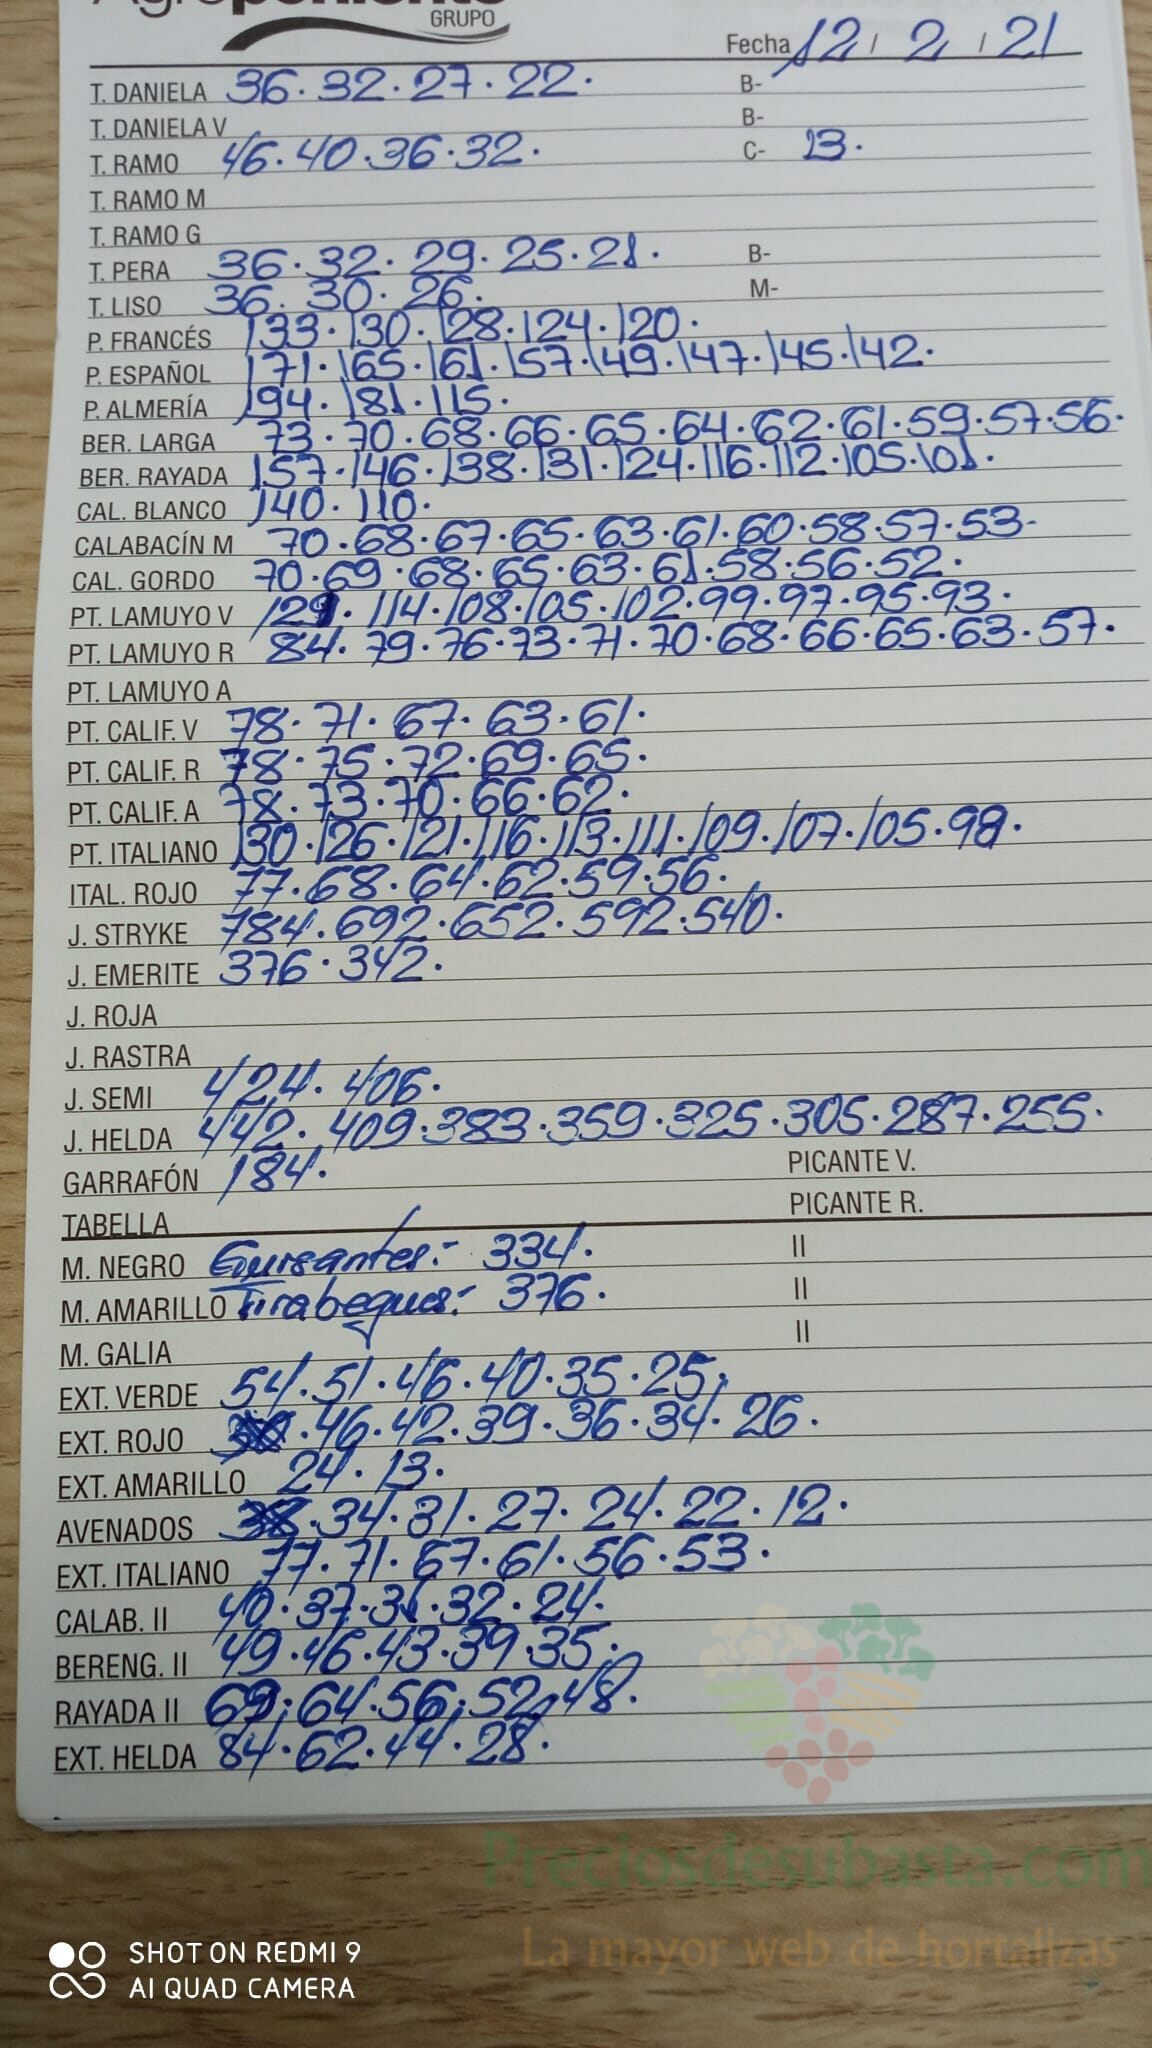 Agroponiente
GRUPO
Fecha 12 / 2 / 21
T. DANIELA 36. 32. 27. 22. B-
T. DANIELA V B-
T. RAMO 46. 40. 36. 32. C- 13.
T. RAMO M
T. RAMO G
T. PERA 36. 32. 29. 25. 21. B-
T. LISO 36. 30. 26. M-
P. FRANCÉS 133. 130. 128. 124. 120.
P. ESPAÑOL 171. 165. 161. 157. 149. 147. 145. 142.
P. ALMERÍA 194. 181. 115.
BER. LARGA 73. 70. 68. 66. 65. 64. 62. 61. 59. 57. 56.
BER. RAYADA 157. 146. 138. 131. 124. 116. 112. 105. 101.
CAL. BLANCO 140. 110.
CALABACÍN M 70. 68. 67. 65. 63. 61. 60. 58. 57. 53.
CAL. GORDO 70. 69. 68. 65. 63. 61. 58. 56. 52.
PT. LAMUYO V 121. 114. 108. 105. 102. 99. 97. 95. 93.
PT. LAMUYO R 84. 79. 76. 73. 71. 70. 68. 66. 65. 63. 57.
PT. LAMUYO A
PT. CALIF. V 78. 71. 67. 63. 61.
PT. CALIF. R 78. 75. 72. 69. 65.
PT. CALIF. A 78. 73. 70. 66. 62.
PT. ITALIANO 130. 126. 121. 116. 113. 111. 109. 107. 105. 98.
ITAL. ROJO 77. 68. 64. 62. 59. 56.
J. STRYKE 784. 692. 652. 592. 540.
J. EMERITE 376. 342.
J. ROJA
J. RASTRA
J. SEMI 424. 406.
J. HELDA 442. 409. 383. 359. 325. 305. 287. 255.
GARRAFÓN 184. PICANTE V.
TABELLA PICANTE R.
M. NEGRO Guisantes:- 334. II
M. AMARILLO Tirabeques:- 376. II
M. GALIA II
EXT. VERDE 54. 51. 46. 40. 35. 25.
EXT. ROJO 46. 42. 39. 36. 34. 26.
EXT. AMARILLO 24. 13.
AVENADOS 34. 31. 27. 24. 22. 12.
EXT. ITALIANO 77. 71. 67. 61. 56. 53.
CALAB. II 40. 37. 32. 24.
BERENG. II 49. 46. 43. 39. 35.
RAYADA II 69. 64. 56. 52. 48.
EXT. HELDA 84. 62. 44. 28.
Preciosdesubasta.com
La mayor web de hortalizas
SHOT ON REDMI 9
AI QUAD CAMERA